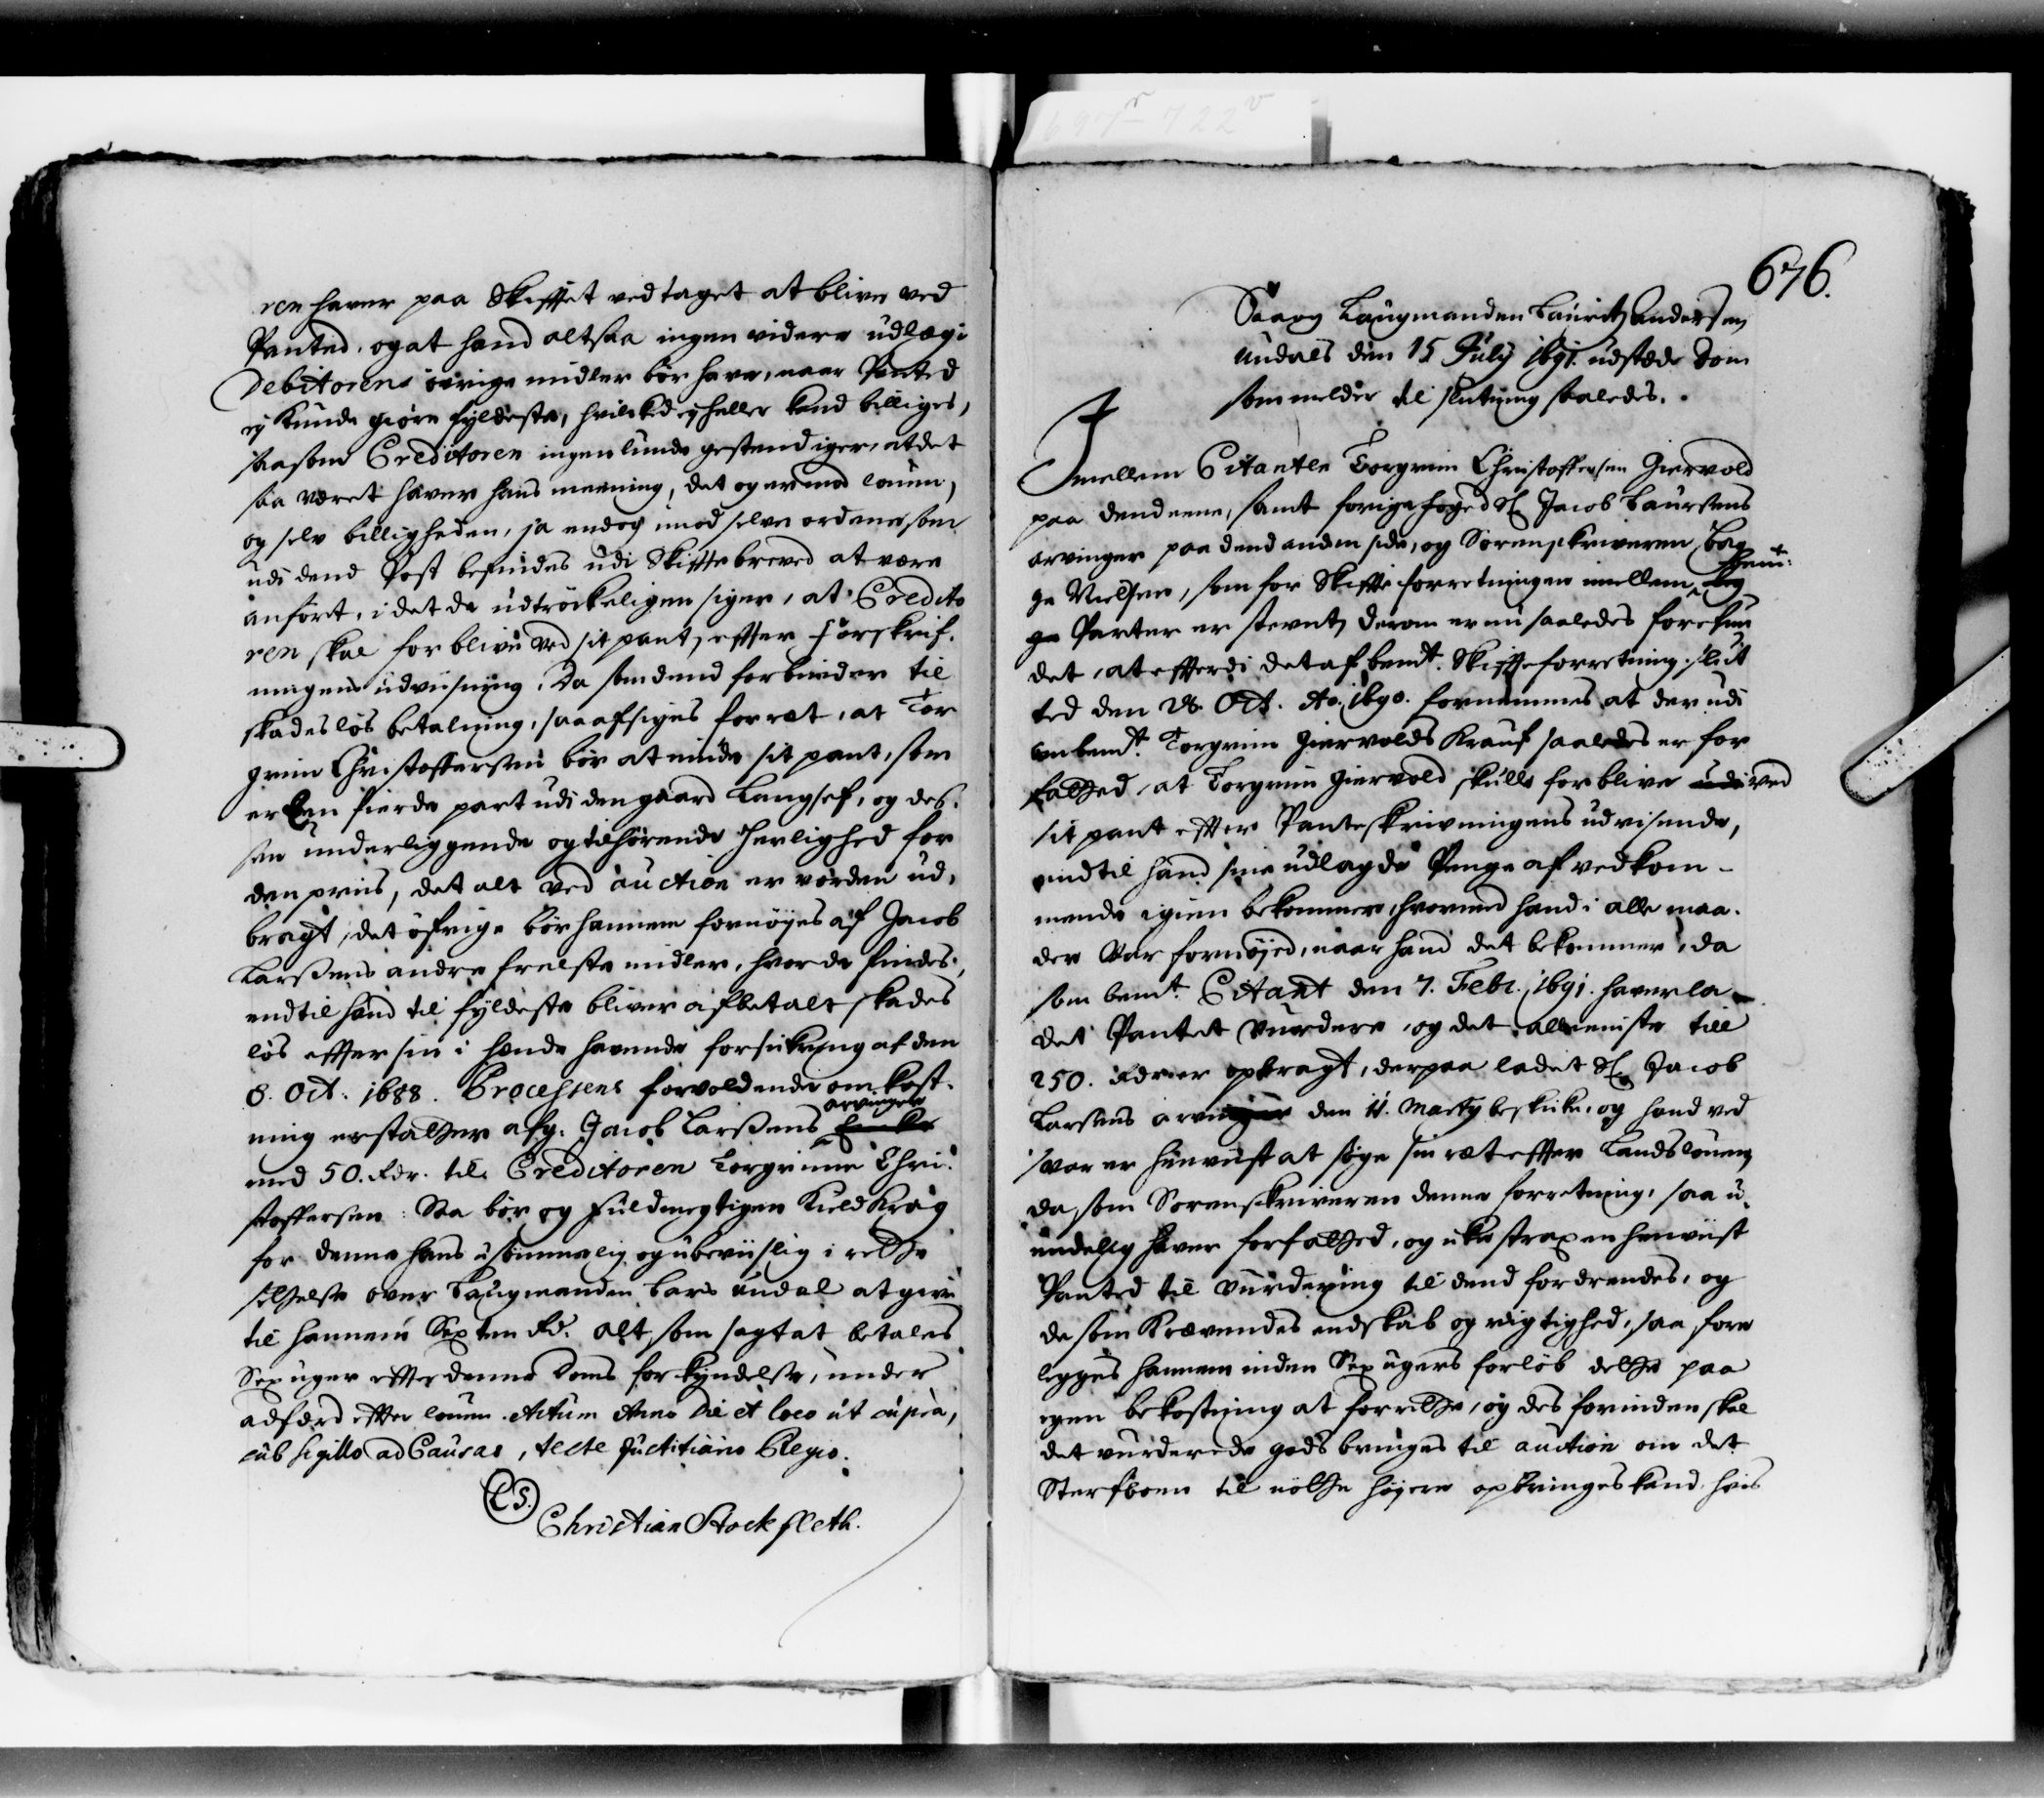 ren haver paa Skifftet vedtaget at blive ved
Panted, og at hand altsaa ingen videre udlæg i
Debitorens öfrige midler bör have, naar Panted
ej kunde giöre fyldeste, hvilked ej heller kand billiges,
saasom Creditoren ingenlunde gestendiger, at det
saa været haver hans meening, det og er mod loven,
og selv billigheden, ja endog imod selve ordene som
udi dend Post befindes udi Skiftebreved at være
anfört, i det de udtröckeligen siger, at Credito
ren skal forblive ved sit pant, effter forskrif-
ningens udviisning, Da som dend forbinder til
skadeslös betalning, saa afsiges for ræt, at Tor
grim Christoffersen bör at nyde sit pant, som
er Een fierde part udi den gaard Langsef, og des-
sen underliggende og tilhörende herlighed for
den priis, det alt ved auction er vorden ud-
bragt, det öfrige bör hannem fornöyes af Jacob
Larssens andre frelste midler, hvor de findes,
endtil hand til fyldeste bliver afbetalt skades
lös effter sin i hende havende forsickring af den
8. Oct. 1688. Processens forvoldende omkost-
arvinger
ning erstatter afg. Jacob Larssens Encke
med 50. Rdr. til Creditoren Torgrimm Chri-
stoffersen: Saa bör og fuldmegtigen Kield Krag
for denne hans usömmelig og ubeviislig i rette
settelse over Laugmanden Lars Undal at give
til hannem Sexten Rd. alt som sagt at betales
Sex uger effter denne Doms forkyndelse, under
adferd effter loven. Actum Anno Die et loco ut supra,
sub Sigillo ad Causas, teste Justitiario Regio.
(LS.)
Christian Stockfleth.
676.
Saa og Laugmanden Lauritz Andersen
Undals den 15 July 1691. udstede Dom
som melder til slutning saaledes.
Imellem Citanten Torgrim Christoffersen Giervold
paa dend eene, samt forige foged Sl. Jacob Laursens
arvinger paa dend anden side, og Sorenskriveren
ge Nielsen, som for Skiffte forretningen imellem beg
ge Parter er stevnt, derom er nu saaledes forefun
det, at efferdi det af bemt. Skiffteforretning slut
ted den 28. Oct. Ao. 1690. fornemmes at der udi
ombemt. Torgrim Giervolds krauf saaledes er for
fatted, at Torgrim Giervold skulle forblive udi ved
sit pant effter Panteskrivningens udvisende,
indtil hand sine udlagde Penge af vedkom-
mende igien bekommer, hvormed hand i alle maa-
der var fornöyed, naar hand det bekommer, da
som bemt. Citant den 7. Febr. 1691. haver la-
det Pantet vurdere, og det alleeniste till
250. Rdrer opbragt, derpaa ladet Sl. Jacob
Larsens arvinger den 11. Marty beskicke, og hand ved
svar er henviist at söge sin ræt effter Landsloven,
da som Sorenskriveren denne forretning, saa u-
ændelig haver forfatted, og icke strax en henviist
Panted til vurdering til dend fordrendes, og
de som krævendes endskab og rigtighed, saa fore
legges hannem inden Sex ugers forlöb dette paa
egen bekostning at forrette, og des forinden skal
det vurderede gods bringes til auction om det
Sterfboen til nötte höyere opbringes kand, hvis